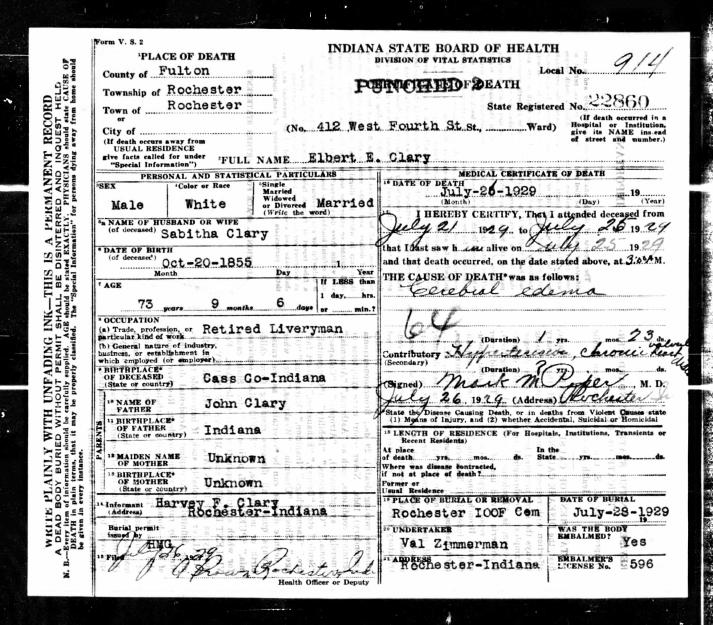 Form V. S. 2
INDIANA STATE BOARD OF HEALTH
DIVISION OF VITAL STATISTICS
Local No. 914
PUNCHED 2 OF DEATH
State Registered No. 22860
¹PLACE OF DEATH
County of Fulton
Township of Rochester
Town of Rochester
or
City of
(No. 412 West Fourth St St., Ward)
(If death occurred in a Hospital or Institution, give its NAME instead of street and number.)
(If death occurs away from
USUAL RESIDENCE
give facts called for under
"Special Information")
²FULL NAME Elbert E. Clary
WRITE PLAINLY WITH UNFADING INK—THIS IS A PERMANENT RECORD
A DEAD BODY BURIED WITHOUT PERMIT SHALL BE DISINTERRED AND INQUEST HELD
N. B.—Every item of information should be carefully supplied. AGE should be stated EXACTLY. PHYSICIANS should state CAUSE OF
DEATH in plain terms, that it may be properly classified. The "Special Information" for persons dying away from home should
be given in every instance.
PERSONAL AND STATISTICAL PARTICULARS
³SEX
Male
⁴Color or Race
White
⁵Single
Married
Widowed
or Divorced Married
(Write the word)
NAME OF HUSBAND OR WIFE
(of deceased) Sabitha Clary
⁶DATE OF BIRTH
(of deceased)
Oct-20-1855 1
Month Day Year
⁷AGE
73 years 9 months 6 days
If LESS than
1 day, hrs.
or min.?
⁸OCCUPATION
(a) Trade, profession, or Retired Liveryman
particular kind of work
(b) General nature of industry,
business, or establishment in
which employed (or employer)
⁹BIRTHPLACE
OF DECEASED Cass Co-Indiana
(State or country)
PARENTS
¹⁰NAME OF
FATHER John Clary
¹¹BIRTHPLACE
OF FATHER Indiana
(State or country)
¹²MAIDEN NAME
OF MOTHER Unknown
¹³BIRTHPLACE
OF MOTHER Unknown
(State or country)
¹⁴Informant Harvey F. Clary
(Address) Rochester-Indiana
Burial permit
issued by HMG
¹⁵Filed July 26, 1929
Brown, Rochester, Ind
Health Officer or Deputy
MEDICAL CERTIFICATE OF DEATH
¹⁶DATE OF DEATH
July-26-1929 19
(Month) (Day) (Year)
I HEREBY CERTIFY, That I attended deceased from
July 21 1929 to July 25 1929
that I last saw h im alive on July 25 1929
and that death occurred, on the date stated above, at M.
THE CAUSE OF DEATH was as follows:
Cerebral edema
64
(Duration) 1 yrs. mos. 23 ds.
Contributory Hypertension, chronic valvular heart
(Secondary)
(Duration) ? yrs. mos. ds.
(Signed) Mark M Piper M. D.
July 26, 1929 (Address) Rochester
State the Disease Causing Death, or in deaths from Violent Causes state
(1) Means of Injury, and (2) whether Accidental, Suicidal or Homicidal
¹⁸LENGTH OF RESIDENCE (For Hospitals, Institutions, Transients or
Recent Residents)
At place In the
of death yrs. mos. ds. State yrs. mos. ds.
Where was disease contracted,
if not at place of death?
Former or
Usual Residence
¹⁹PLACE OF BURIAL OR REMOVAL
Rochester IOOF Cem
DATE OF BURIAL
July-28-1929
19
²⁰UNDERTAKER
Val Zimmerman
WAS THE BODY
EMBALMED? Yes
²¹ADDRESS
Rochester-Indiana
EMBALMER'S
LICENSE No. 596